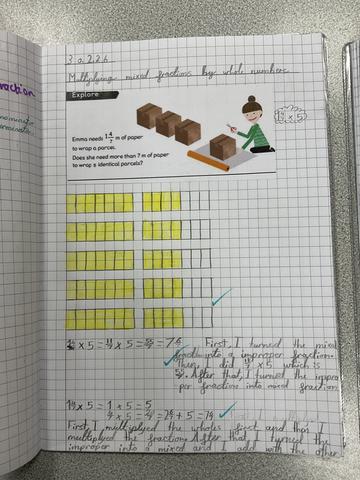 raction
Multiplying mixed fractions by whole numbers
Explore
Emma needs 1 4/7 m of paper
to wrap a parcel.
Does she need more than 7 m of paper
to wrap 5 identical parcels?
1 4/7 x 5
1 4/7 x 5 = 11/7 x 5 = 55/7 = 7 6/7 First, I turned the mixed
fraction into a improper fraction.
Then, I did 11/7 x 5 which is
55/7. After that, I turned the impro
per fraction into mixed fraction
1 4/7 x 5 = 1 x 5 = 5
4/7 x 5 = 20/7 = 2 6/7 + 5 = 7 6/7
First, I multiplyed the wholes first and then I
multiplyed the fraction. After that, I turned the
improper into a mixed and I add with the other